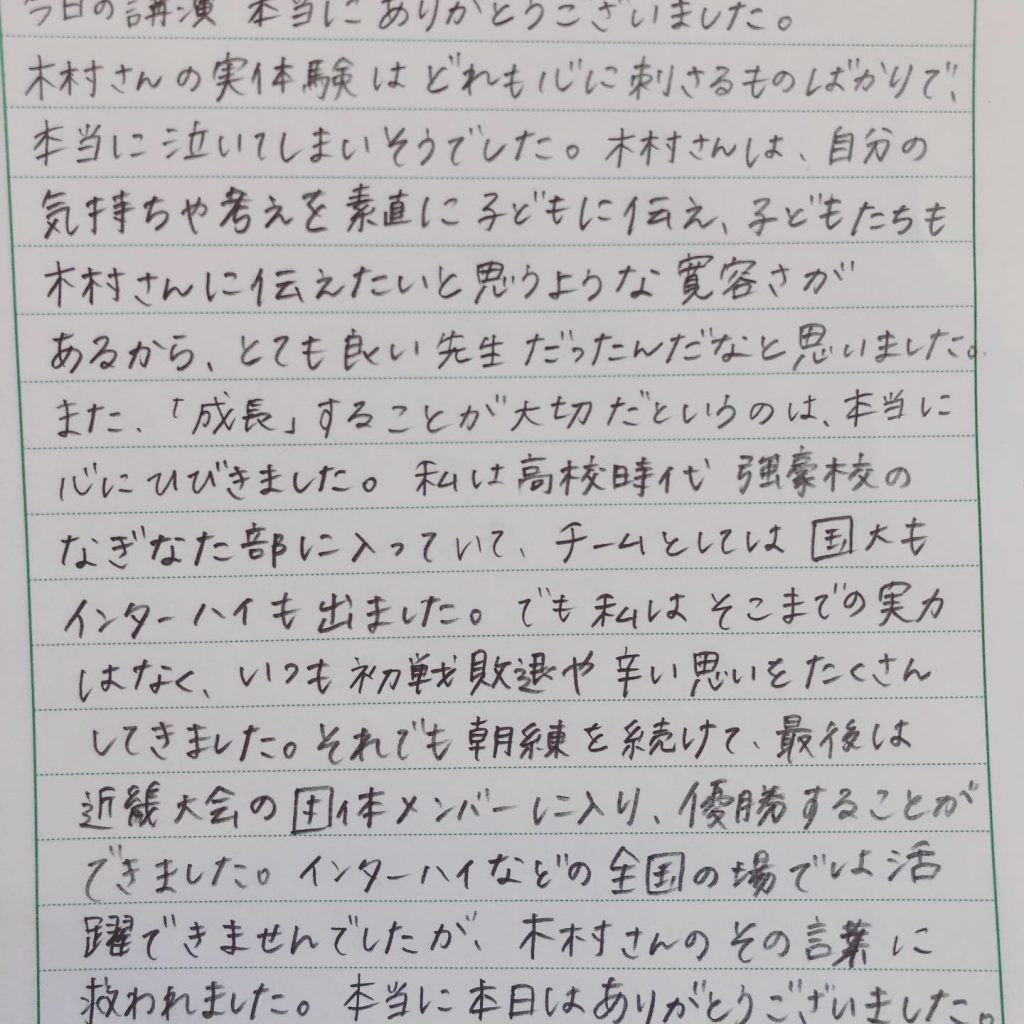 今日の講演 本当にありがとうございました。
木村さんの実体験はどれも心に刺さるものばかりで、
本当に泣いてしまいそうでした。木村さんは、自分の
気持ちや考えを素直に子どもに伝え、子どもたちも
木村さんに伝えたいと思うような寛容さが
あるから、とても良い先生だったんだなと思いました。
また、「成長」することが大切だというのは、本当に
心にひびきました。私は高校時代 強豪校の
なぎなた部に入っていて、チームとしては国大も
インターハイも出ました。でも私はそこまでの実力
はなく、いつも初戦敗退や辛い思いをたくさん
してきました。それでも朝練を続けて、最後は
近畿大会の団体メンバーに入り、優勝することが
できました。インターハイなどの全国の場では活
躍できませんでしたが、木村さんのその言葉に
救われました。本当に本日はありがとうございました。